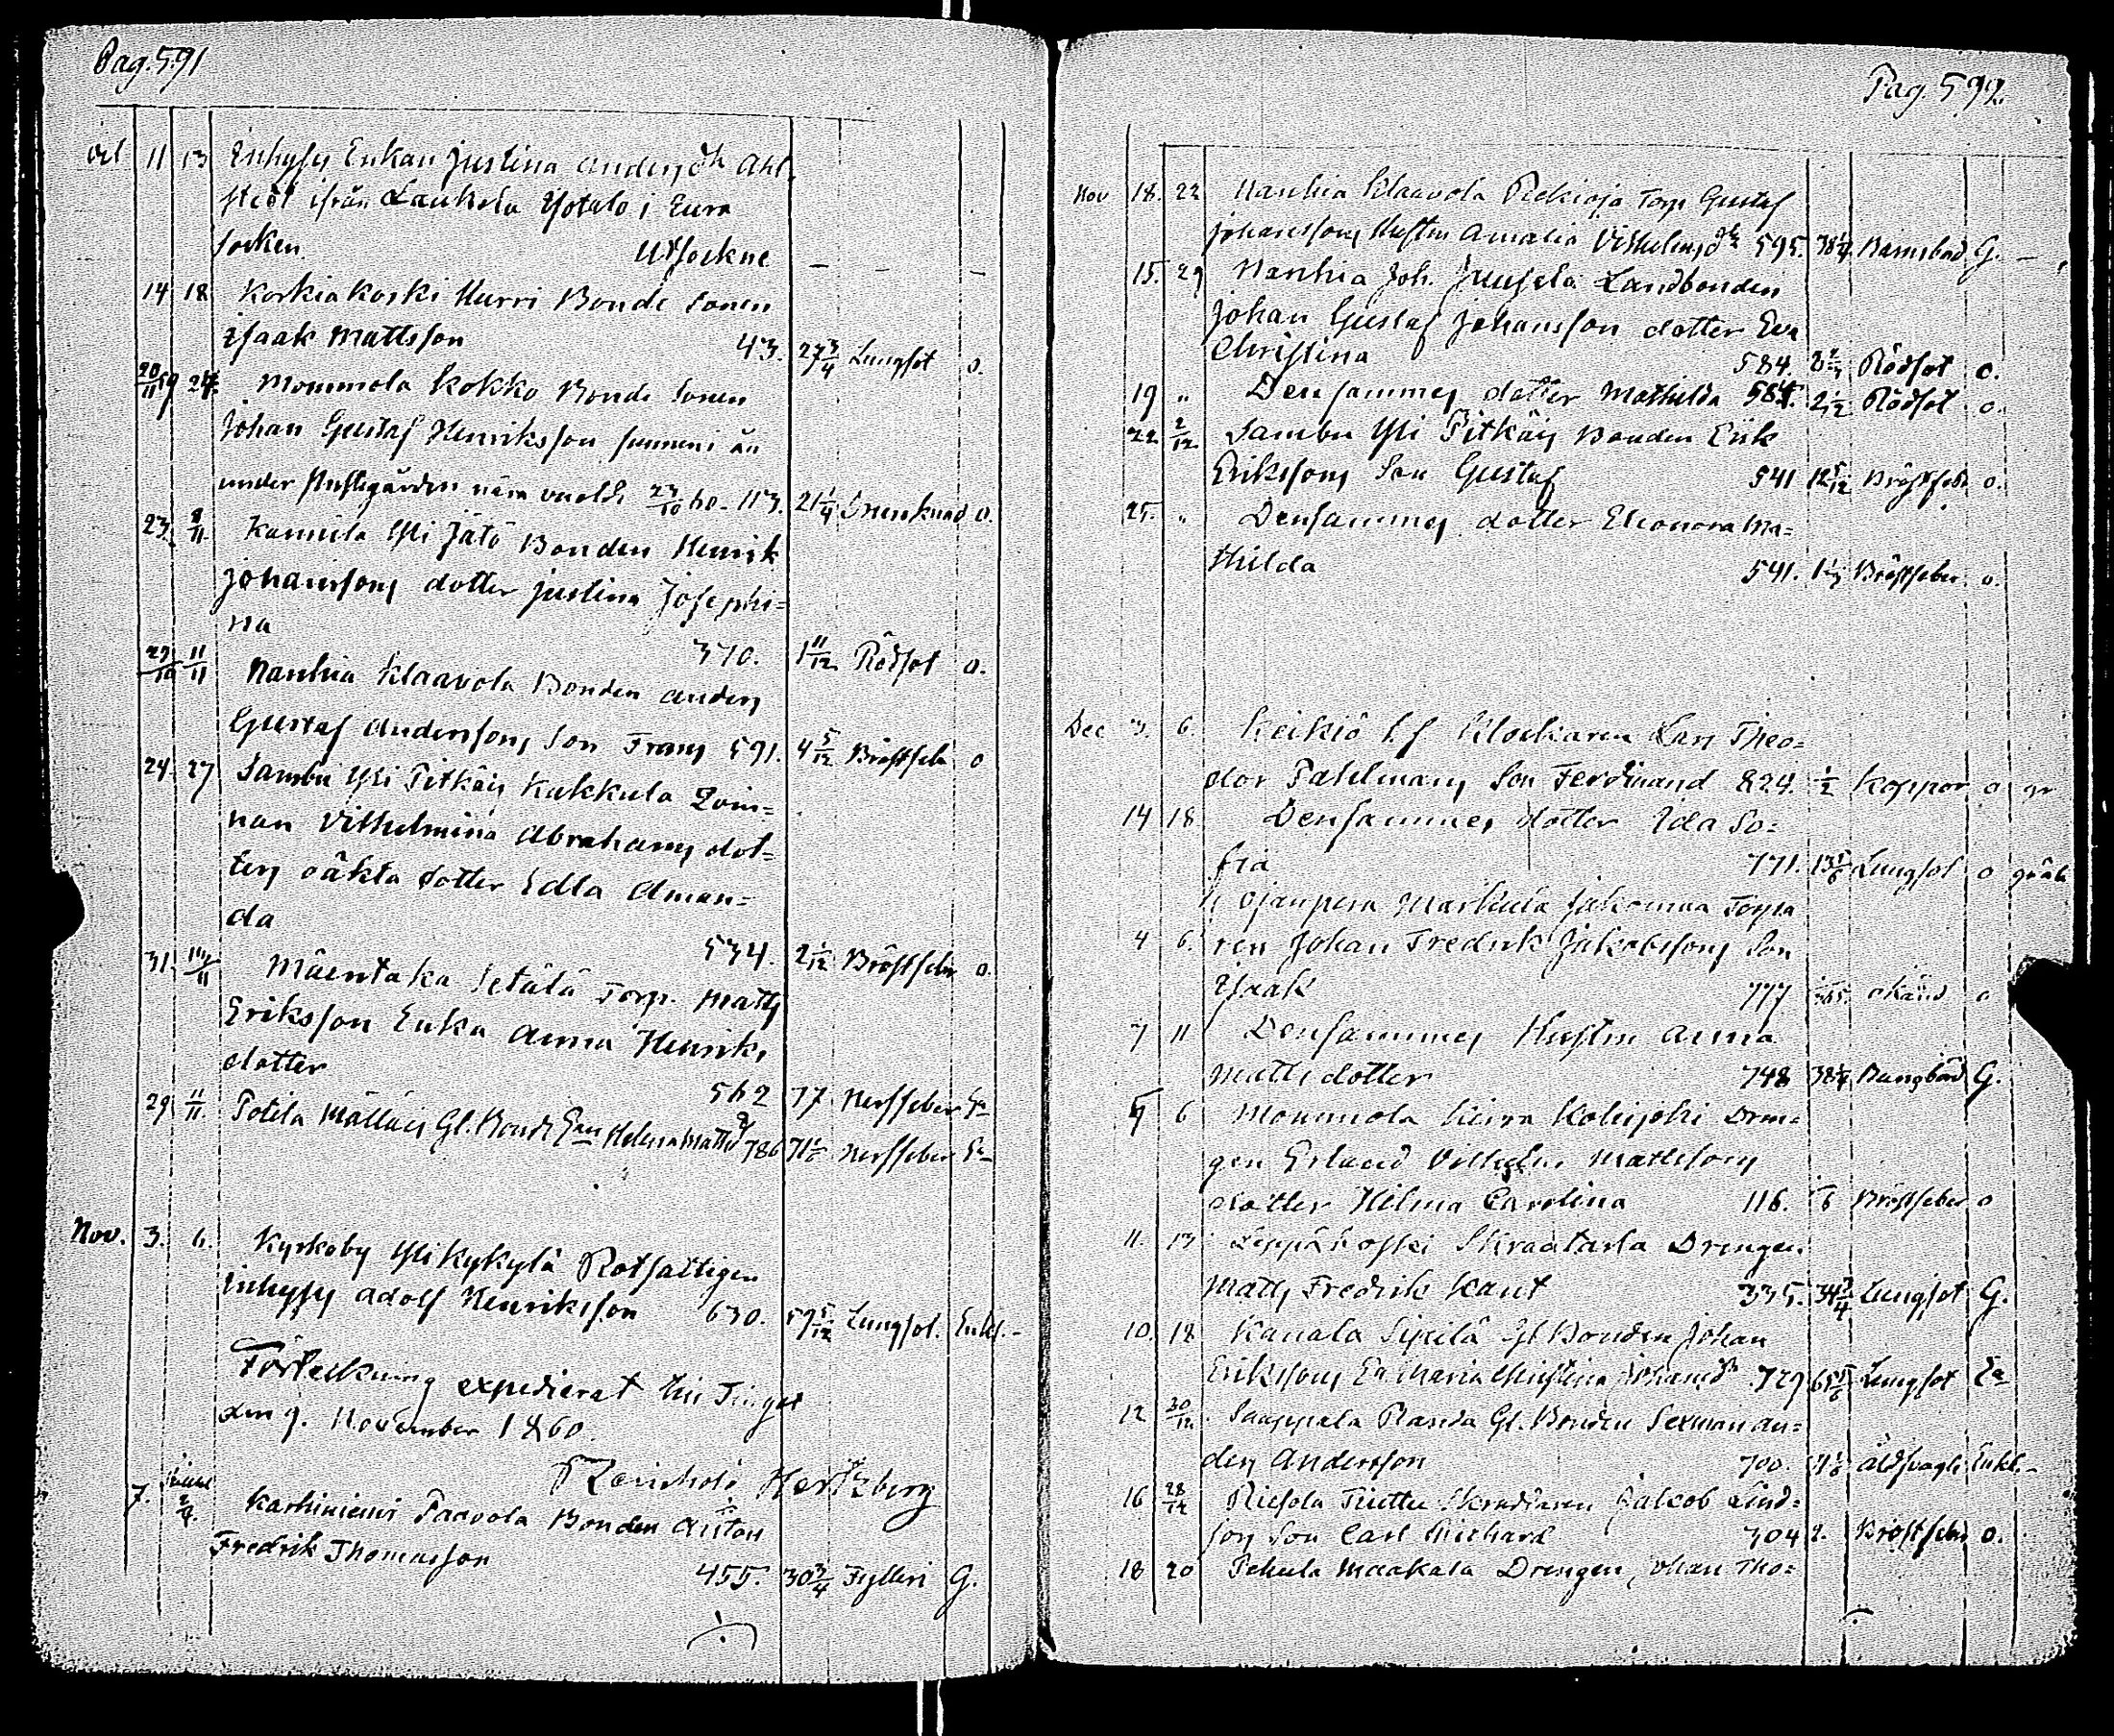 Pag. 591
Oct 11 13 Inhyses Enkan Justina Anders dr Ahl
stedt ifrån Laukola Ylotalo i Eura
Socken Utsockne – – –
14 18 Korkiakoski Hurri Bonde Sonen
Isaak Mattsson 43. 27 3/4 Lungsot o.
20/11 59 24. Mommola Kokko Bonde Sonen
Johan Gustaf Henriksson funnen
under 23/10 60. 113. 21 1/4 Drunknad o.
23. 8/11 Kamila Yli Jätö Bonden Henrik
Johanssons dotter Justina Josephi=
na 370. 1 11/12 Rödsot o.
29/10 11/11 Nanhia Klaavola Bonden Anders
Gustaf Anderssons Son Frans 591. 4 5/12 Bröstfeb o
24. 27 Sambu Yli Pitkäis Kukkula Qvin=
nan Vilhelmina Abrahams dot=
ters oäkta dotter Edla Aman=
da 534. 2 1/12 Bröstfeber o.
31. 11 Mäentaka Setälä Torp. Matts
Eriksson Enka Anna Henriks
dotter 562 77 Nerffeber Ea
29 11/11 Potila Mälläis Gl. Bond Ean Helena Mattsd 786 71 1/6 Nerffeber Ea
Nov. 3. 6. Kyrkoby Yli Kykylä Rotfattigen
Inhyses Adolf Henriksson 630. 59 5/12 Lungsot. Enkl.-
Förteckning expedierat till Tinget
den 9. November 1860.
Reinhold Hertzberg
7. 2/4. Karhiniemi Paavola Bonden Anton
Fredrik Thomasson 455. 30 3/4 Fylleri G.
Pag. 592.
Nov 18. 22 Nanhia Klaavola Rekioja Torp Gustaf
Johanssons Hustru Amalia Vilhelms dr 595. 38 1/4 Barnsbörd G. –
15. 29 Nanhia Joh. Juusela Landbonden
Johan Gustaf Johansson dotter Eva
Christina 584. Rödsot o.
19 " Densammes dotter Mathilda 584. 2 1/12 Rödsot o.
22 2/12 Sambu Yli Pitkäis Bonden Erik
Erikssons Son Gustaf 541 12 5/12 Bröstfeb o.
25. " Densammes dotter Eleonora Ma=
thilda 541. Bröstfeber o.
Dec 3. 6. Keikiö Klockaren Lars Theo=
dor Pahlmans Son Ferdinand 824. 1/2 Koppor o gr
14 18 Densammes dotter Ida So=
fia 771. 13 5/6 Lungsot o
Ojanperä Markula Jakomaa Torpa
4 6. ren Johan Fredrik Jakobssons Son
Isaak 777 /365. okänd o
7 11 Densammes Hustru Anna
Matts dotter 748 38 1/4 Barnsbörd G.
9 6 Mommola Kirra Koliseki Dren=
gen Erland Vilhelm Mattssons
dotter Hilma Carolina 116. Bröstfeber o
11. 13 Leppäkoski Skraatarla Drengen
Matts Fredrik Kant 335. 34 3/4 Lungsot G.
10. 12 Kanala Sipilä Gl Bonden Johan
Erikssons Ea Maria Christina Johansdr 729 65 5/6 Lungsot Ea
12 20/12 Sauppala Randa Gl. Bonden Sexman An=
ders Andersson 700. Enkl.-
16 28/12 Riesola Tiuttu Skraddaren Jakob Lind=
sons Son Carl Richard 304 2. Bröstfeber o.
18 20 Pehula Maakala Drengen Johan Tho=